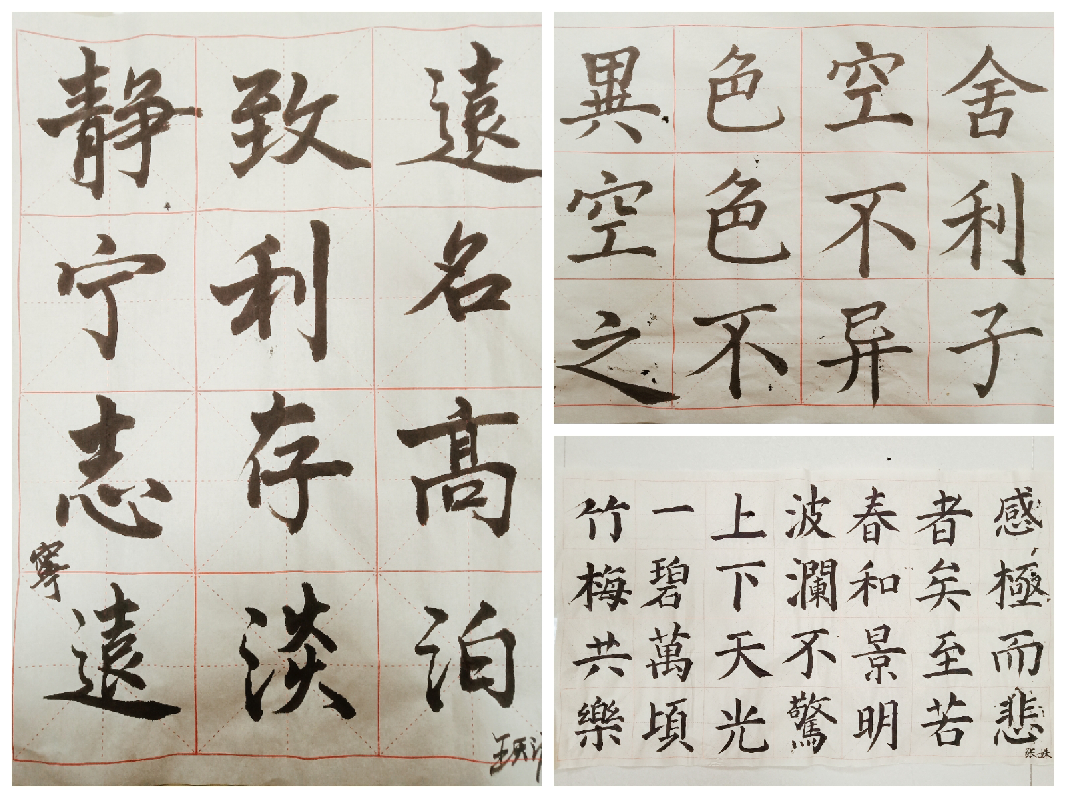 遠名高泊
致利存淡
静宁志遠
寧
舍利子
空不异
色色不
異空之
感極而悲
者矣至若
春和景明
波瀾不驚
上下天光
一碧萬頃
竹梅共樂